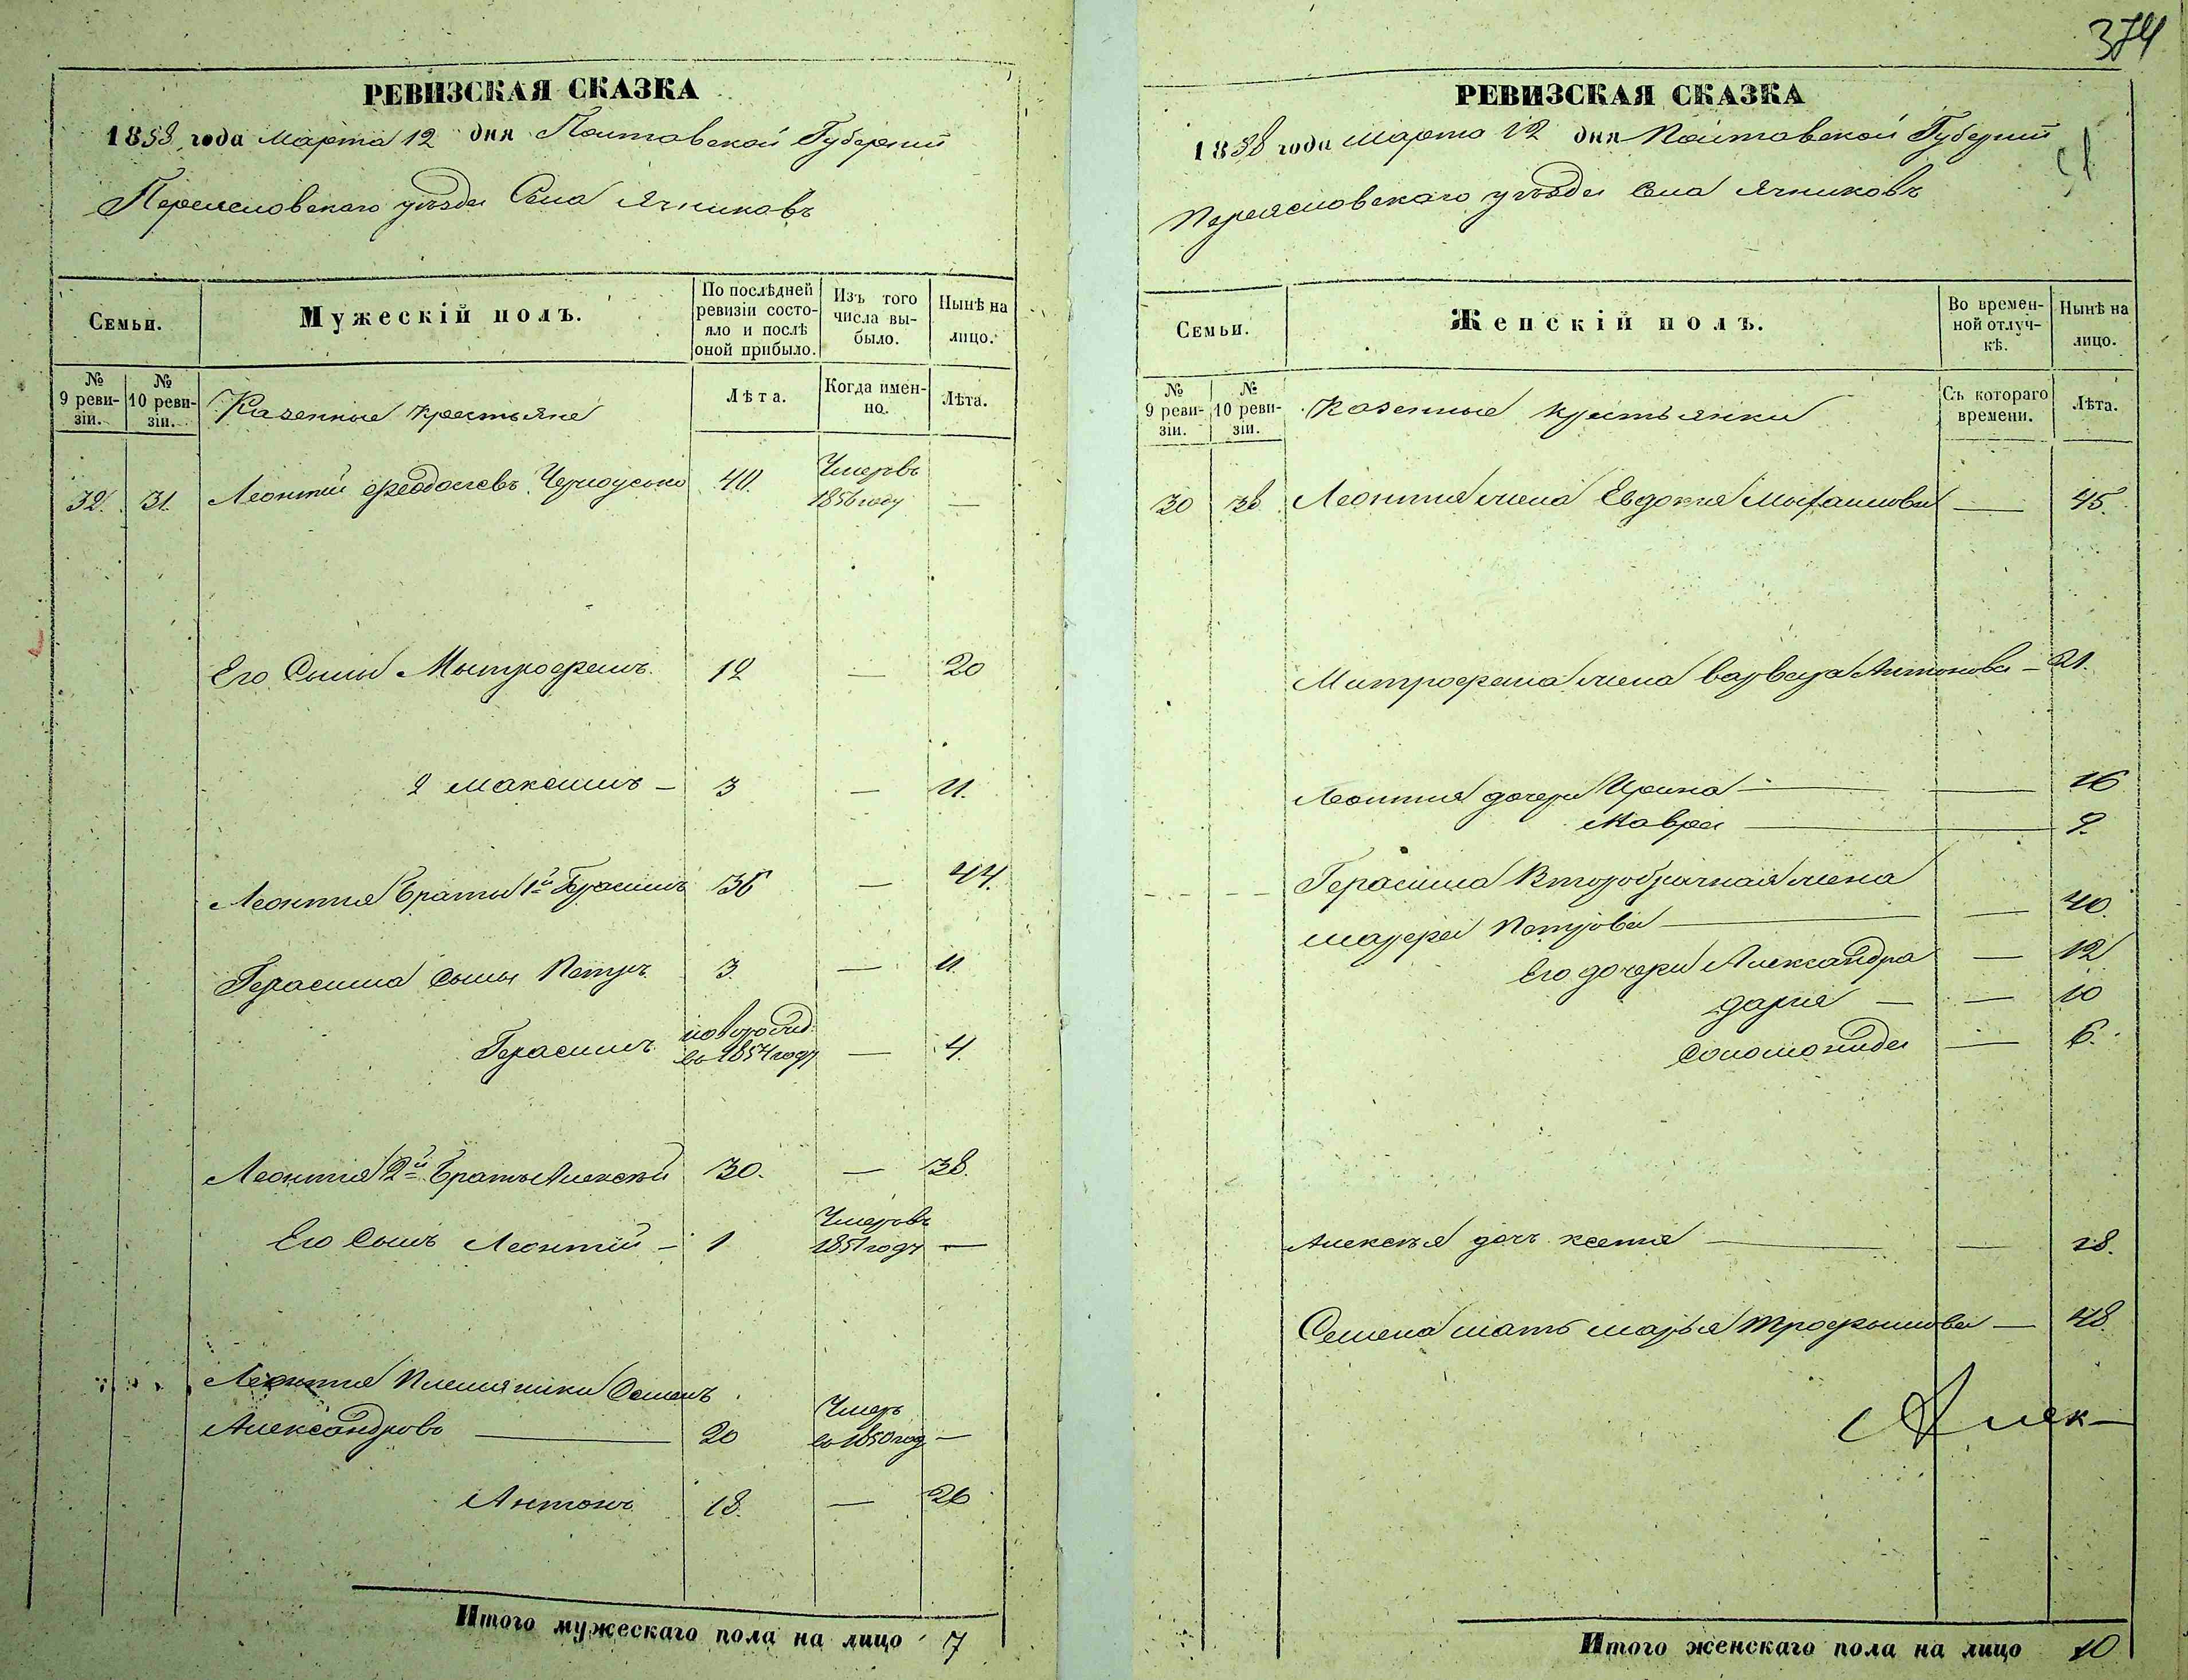 РЕВИЗСКАЯ СКАЗКА
1858 года Марта 12 дня Полтавской Губернии
Переяславскаго уезда Села Ячниковъ
Семьи.
Мужескій полъ.
По послѣдней ревизіи состояло и послѣ оной прибыло.
Изъ того числа выбыло.
Нынѣ на лицо.
№ 9 ревизіи.
№ 10 ревизіи.
Казенные крестьяне
Лѣта.
Когда именно.
Лѣта.
32. 31. Леонтий Феодосіевъ Черноусько 40. Умеръ въ 1856 году —
Его Сыны Мытрофанъ 12 — 20
2 Максимъ — 3 — 11.
Леонтия Браты 1й Герасимъ 36 — 44.
Герасима Сыны Петръ 3. — 11.
Герасимъ новорожд: въ 1854 году — 4.
Леонтия 2й Братъ Алексѣй 30. — 38.
Его Сынъ Леонтий — 1 Умеръ въ 1851 году —
Леонтия Племяники Семенъ
Александровъ — 20 Умеръ въ 1850 год —
Антонъ 18. — 26
Итого мужескаго пола на лицо 7
374
РЕВИЗСКАЯ СКАЗКА
1858 года Марта 12 дня Полтавской Губернии
Переяславскаго уѣзда Села Ячниковъ
Семьи.
Женскій полъ.
Во временной отлучкѣ.
Нынѣ на лицо.
№ 9 ревизіи.
№ 10 ревизіи.
Казенные крестьянки
Съ котораго времени.
Лѣта.
30 Леонтия жена Евдокия Михаилова — 45.
Митрофана жена Варвара Антонова — 21.
Леонтия дочери Ирина — — 16
Мавра — 9.
Герасима Второбрачная жена
Марфа Петрова — — 40.
Его дочери Александра — 12
Дарія — — 10
Соломонида — 6.
Алексѣя дочь Ксенія — — 18.
Семена мать Марья Трофимова — 48
Алек—
Итого женскаго пола на лицо 10